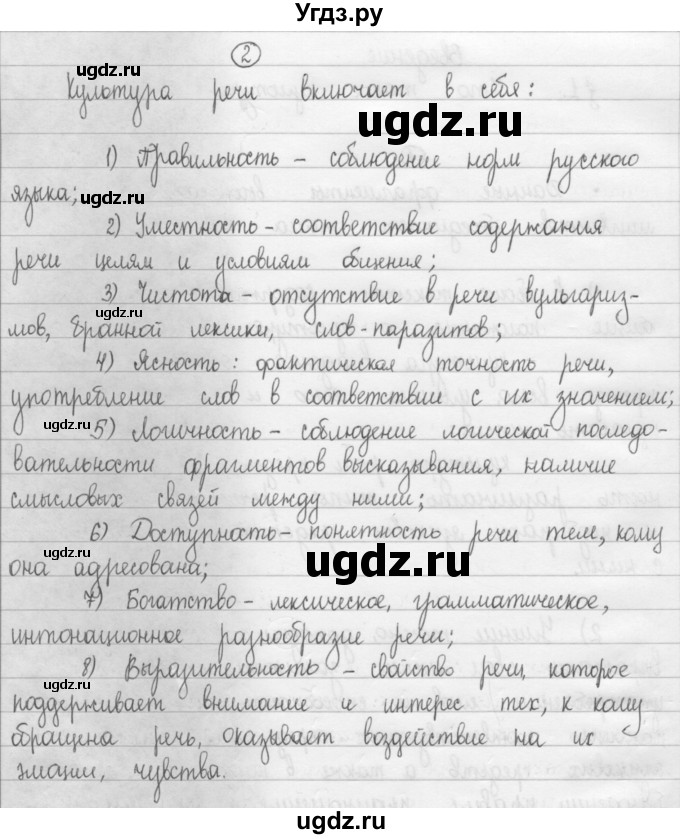 Угдз.ру
2
Культура речи включает в себя:
1) Правильность – соблюдение норм русского
языка;
2) Уместность – соответствие содержания
речи целям и условиям общения;
3) Чистота – отсутствие в речи вульгариз-
мов, бранной лексики, слов-паразитов;
4) Ясность: фактическая точность речи,
употребление слов в соответствии с их значением;
5) Логичность – соблюдение логической последо-
вательности фрагментов высказывания, наличие
смысловых связей между ними;
6) Доступность – понятность речи тем, кому
она адресована;
7) Богатство – лексическое, грамматическое,
интонационное разнообразие речи;
8) Выразительность – свойство речи, которое
поддерживает внимание и интерес тех, к кому
обращена речь, оказывает воздействие на их
эмоции, чувства.
ugdz.ru
ugdz.ru
ugdz.ru
ugdz.ru
ugdz.ru
ugdz.ru
ugdz.ru
ugdz.ru
ugdz.ru